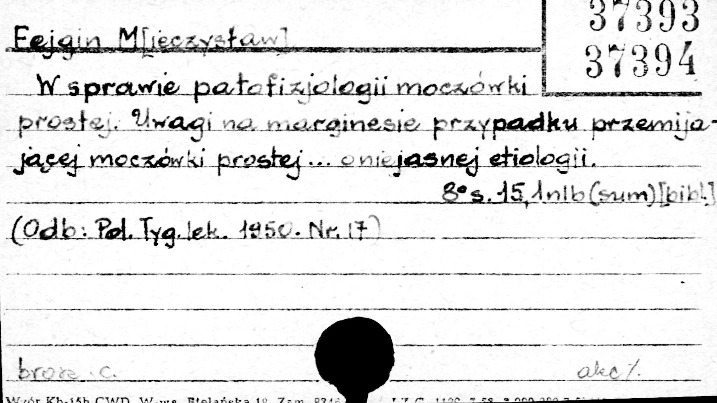 37393
37394
Fejgin M[ieczysław]
W sprawie patofizjologii moczówki
prostej. Uwagi na marginesie przypadku przemija-
jącej moczówki prostej... o niejasnej etiologii.
8° s. 15, 1 nlb (sum) [bibl.]
(Odb: Pol. Tyg. lek. 1950. Nr. 17)
brosz. c.
akc 1.
Wzór Kh-15b CWD, W-wa, Bielańska 18. Zam.